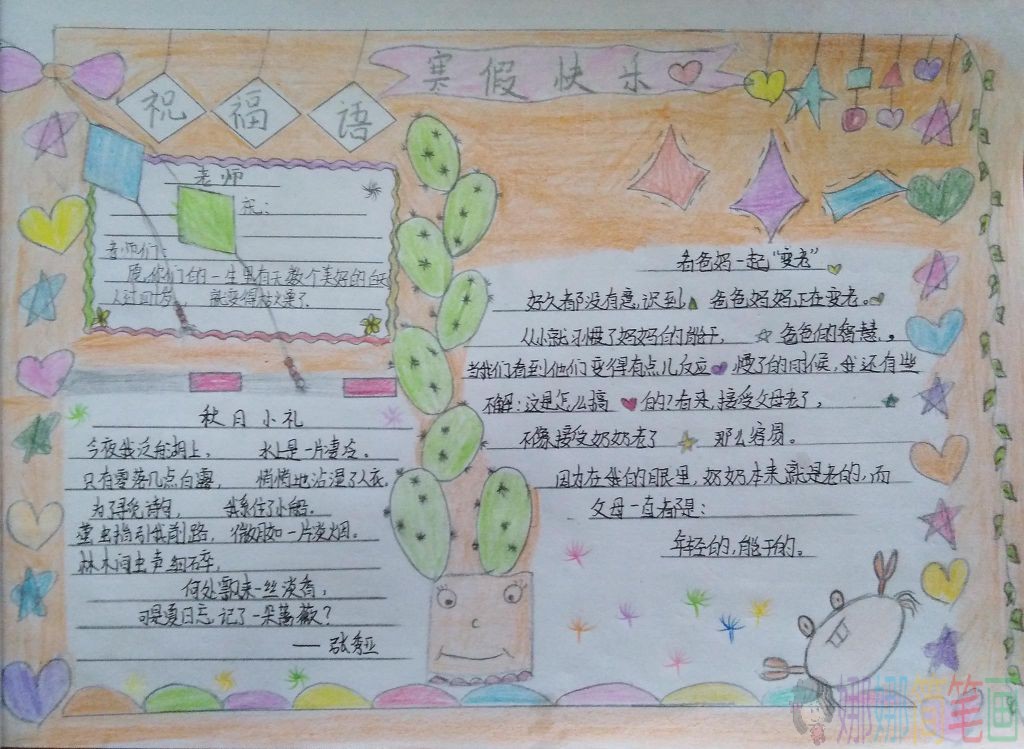 寒假快乐
祝福语
老师
祝:
老师们:
愿你们的一生里有无数个美好的
秋月小礼
今夜我泛舟湖上, 水上是一片凄冷。
只有零落几点白露, 悄悄地沾湿了人衣。
为了寻觅诗句, 我系住了小船。
萤虫指引我前路, 微如一片炭烟。
林木间虫声细碎,
何处飘来一丝淡香,
可是夏日忘记了一朵蔷薇?
——张秀亚
看爸妈一起“变老”
好久都没有意识到 爸爸妈妈正在变老。
从小就习惯了妈妈的能干, 爸爸的智慧。
当我们看到他们变得有点儿反应慢了的时候,我还有些
不解:这是怎么搞的?看来,接受父母老了,
不像接受奶奶老了 那么容易。
因为在我的眼里,奶奶本来就是老的,而
父母一直都是:
年轻的,能干的。
娜娜简笔画